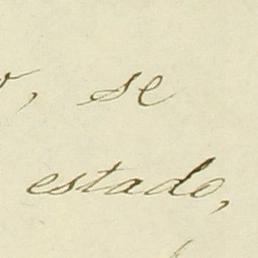 , se
estado,